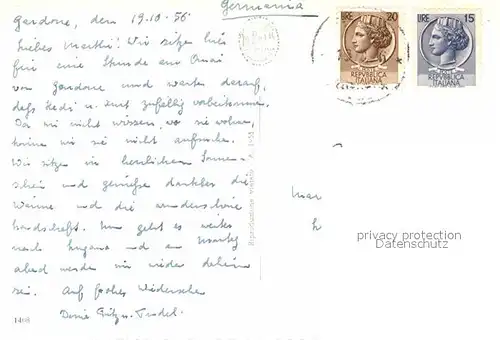 Gardone, den 19.10.56
Germania
liebes Marthi! Wir sitzen hier
für eine Stunde am Quai
von Gardone und warten darauf,
daß Hedi u. Kurt zufällig vorbeikommen.
Da wir nicht wissen, wo sie wohnen,
können wir sie nicht aufsuchen.
Wir sitzen in herrlichem Sonnen-
schein und genießen dankbar die
Wärme und die wunderschöne
Landschaft. Nun geht es weiter
nach Lugano und am Montag
abend werden wir wieder daheim
sei. Auf frohes Wiedersehen
Deine Fritz u. Trudel.
1468
LIRE 20
REPVBBLICA
ITALIANA
LIRE 15
REPVBBLICA
ITALIANA
privacy protection
Datenschutz